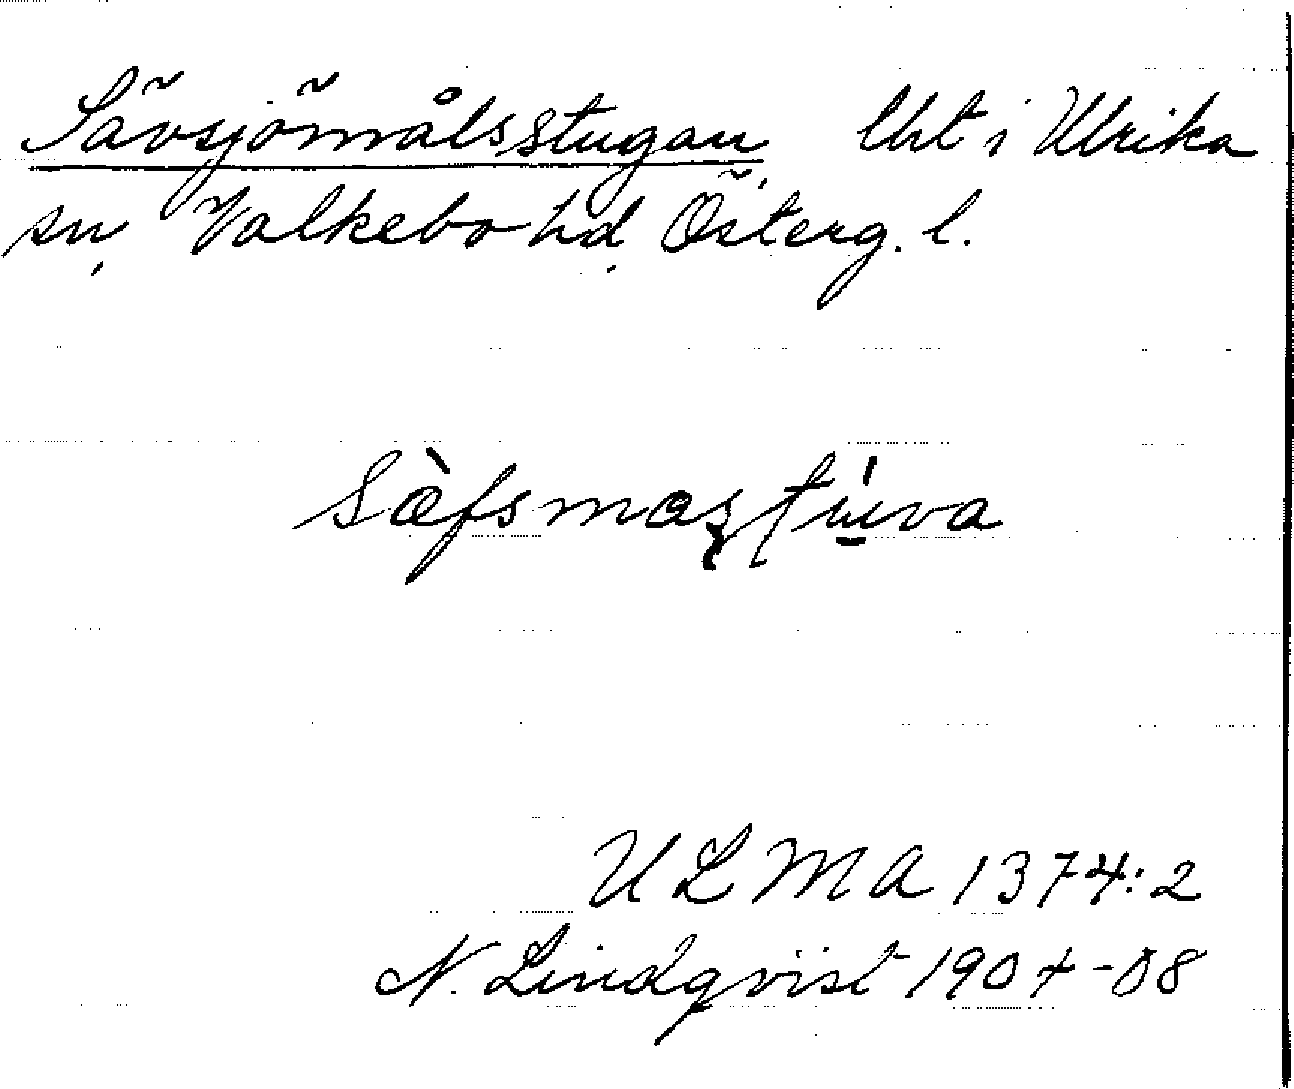 Sävsjömålsstugan, lht i Ulrika
sn, Valkebo hd, Österg. l.
Sæ̀fsmaʂtúva
ULMA 1374:2
N. Lindqvist 1904-08